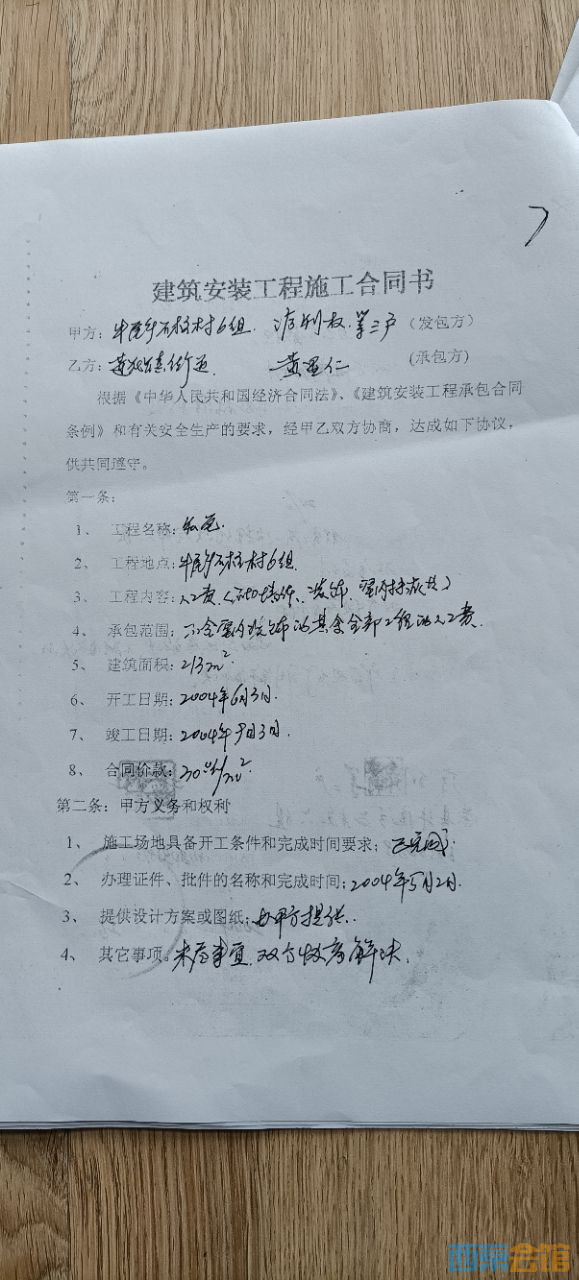 建筑安装工程施工合同书
甲方: 石柱村6组. 第三户 (发包方)
乙方: 黄 仁 (承包方)
根据《中华人民共和国经济合同法》、《建筑安装工程承包合同
条例》和有关安全生产的要求，经甲乙双方协商，达成如下协议，
供共同遵守。
第一条:
1、 工程名称:
2、 工程地点: 石柱村6组.
3、 工程内容: 人工费
4、 承包范围: 全部工程 人工费.
5、 建筑面积: 213m².
6、 开工日期: 2004年6月3日.
7、 竣工日期: 2004年 月3日.
8、 合同价款: /m².
第二条: 甲方义务和权利
1、 施工场地具备开工条件和完成时间要求: 已完成.
2、 办理证件、批件的名称和完成时间: 2004年5月2日.
3、 提供设计方案或图纸: 由甲方提供.
4、 其它事项: 未尽事宜, 双方 解决.
西京会馆